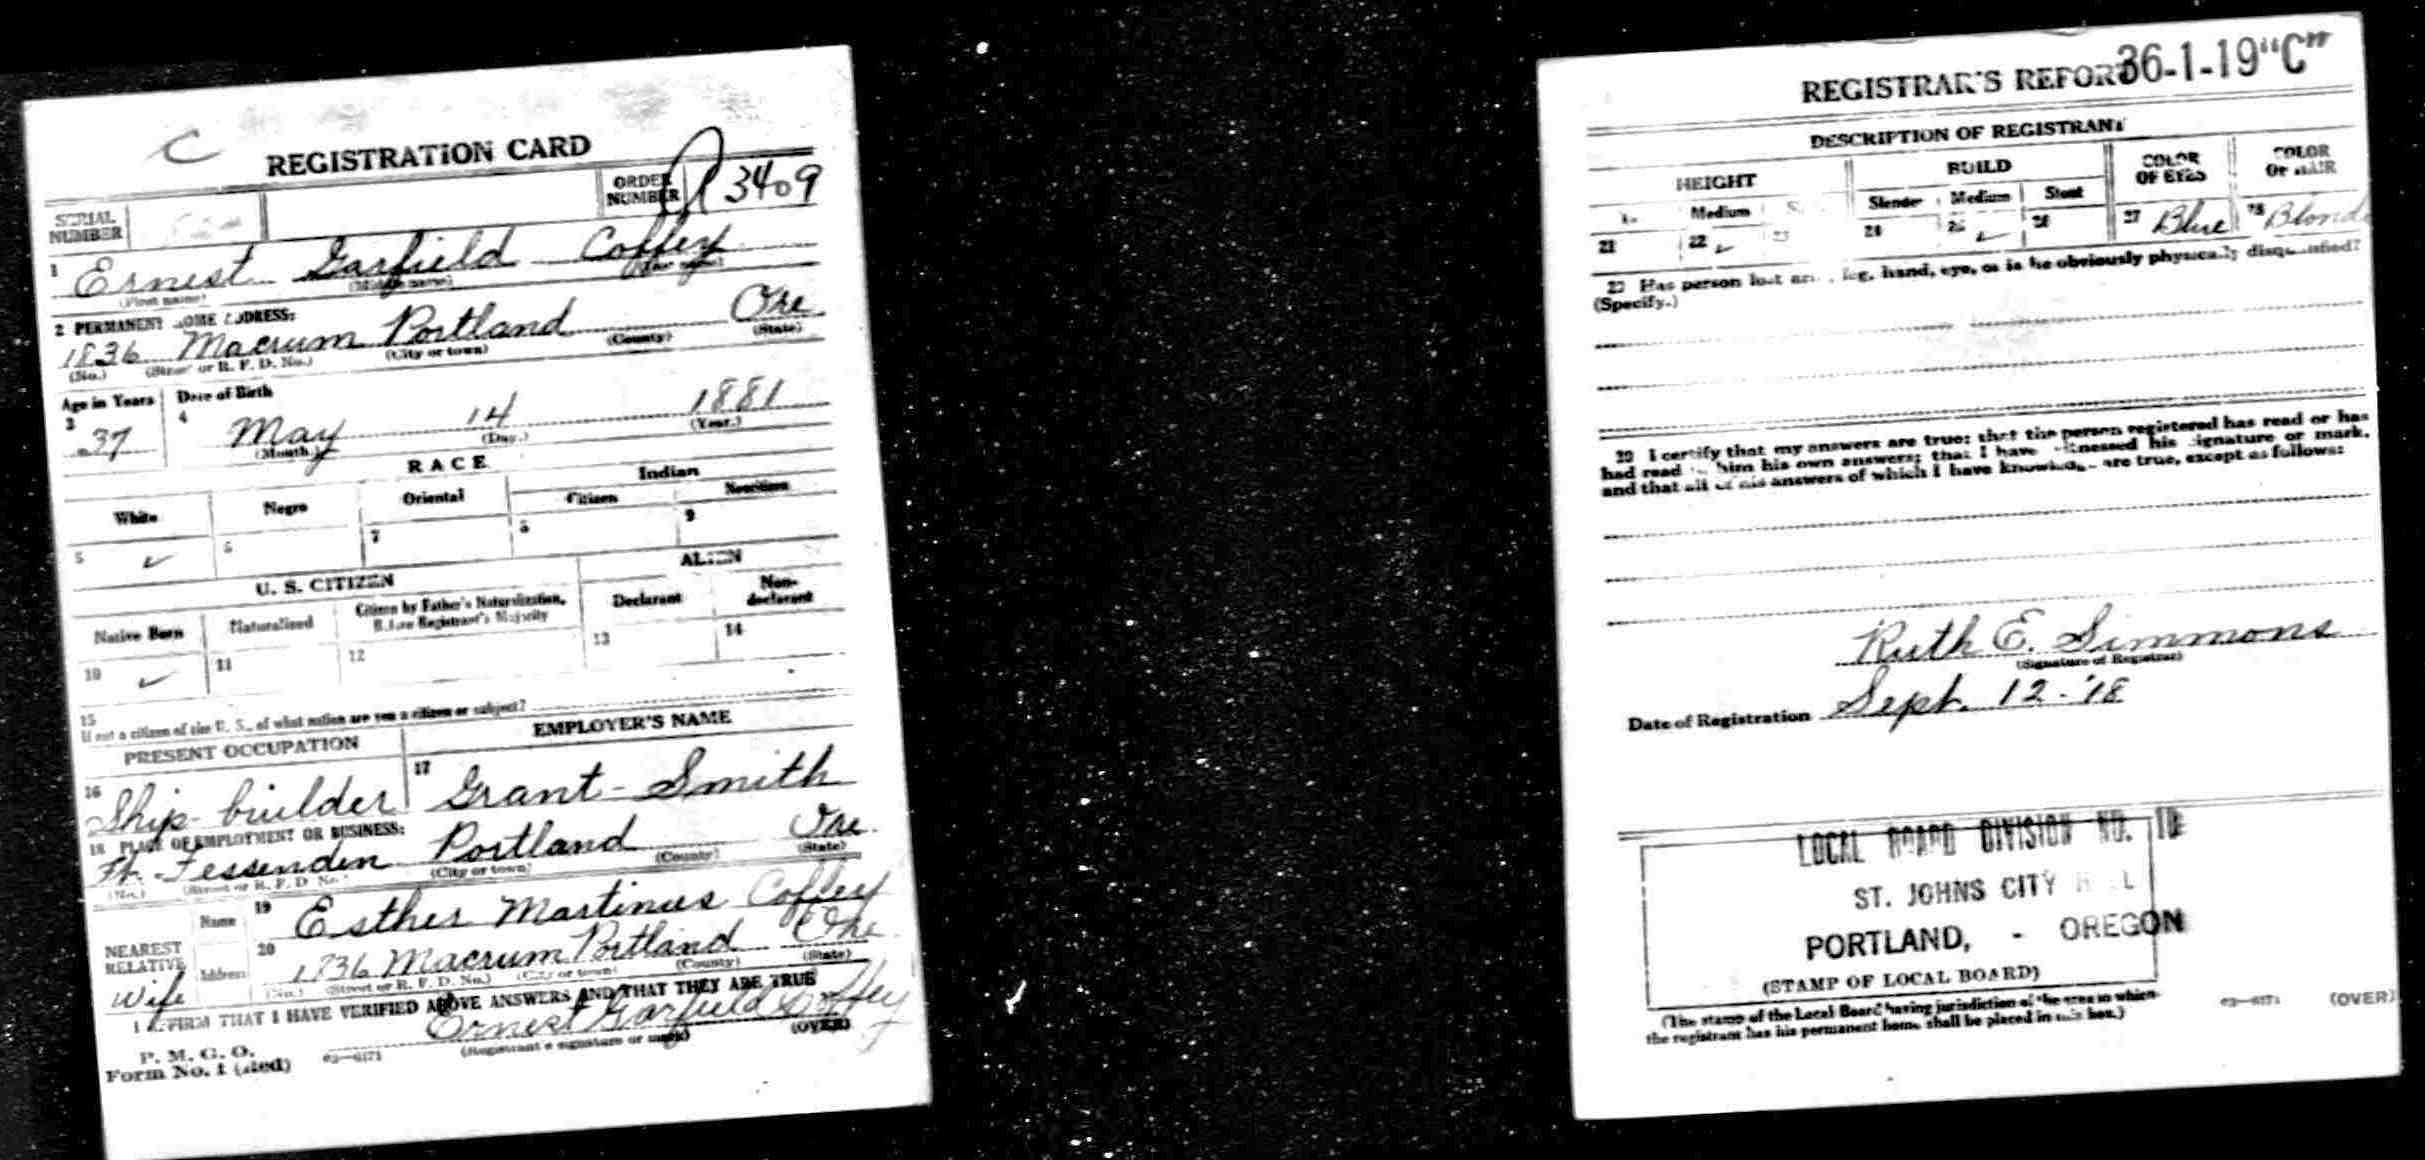 C
REGISTRATION CARD
SERIAL NUMBER
ORDER NUMBER
3409
1 Ernest Garfield Coffey
(First name) (Middle name) (Last name)
2 PERMANENT HOME ADDRESS:
1836 Macrum Portland Ore
(No.) (Street or R. F. D. No.) (City or town) (County) (State)
Age in Years Date of Birth
3 37 4 May 14 1881
(Month.) (Day.) (Year.)
RACE
White Negro Oriental Indian
Citizen Noncitizen
5 ✓ 6 7 8 9
U. S. CITIZEN ALIEN
Native Born Naturalized Citizen by Father's Naturalization, Before Registrant's Majority Declarant Non-declarant
10 ✓ 11 12 13 14
15
If not a citizen of the U. S., of what nation are you a citizen or subject?
PRESENT OCCUPATION EMPLOYER'S NAME
16 Ship-builder 17 Grant-Smith
18 PLACE OF EMPLOYMENT OR BUSINESS:
Ft. Fessenden Portland Ore.
(No.) (Street or R. F. D. No.) (City or town) (County) (State)
NEAREST RELATIVE
Wife
Name 19 Esther Martinus Coffey
Address 20 1736 Macrum Portland Ore.
(No.) (Street or R. F. D. No.) (City or town) (County) (State)
I AFFIRM THAT I HAVE VERIFIED ABOVE ANSWERS AND THAT THEY ARE TRUE
Ernest Garfield Coffey
P. M. G. O.
Form No. 1 (Red) 03—6171 (Registrant's signature or mark) (OVER)
REGISTRAR'S REPORT 36-1-19 "C"
DESCRIPTION OF REGISTRANT
HEIGHT BUILD COLOR OF EYES COLOR OF HAIR
Medium Slender Medium Stout
21 22 ✓ 23 24 25 ✓ 26 27 Blue 28 Blond
29 Has person lost arm, leg, hand, eye, or is he obviously physically disqualified?
(Specify.)
30 I certify that my answers are true; that the person registered has read or has
had read to him his own answers; that I have witnessed his signature or mark,
and that all of his answers of which I have knowledge are true, except as follows:
Ruth E. Simmons
(Signature of Registrar)
Date of Registration Sept. 12-'18
LOCAL BOARD DIVISION NO. 10
ST. JOHNS CITY HALL
PORTLAND, - OREGON
(STAMP OF LOCAL BOARD)
(The stamp of the Local Board having jurisdiction of the area in which
the registrant has his permanent home shall be placed in this box.)
03—6171 (OVER)